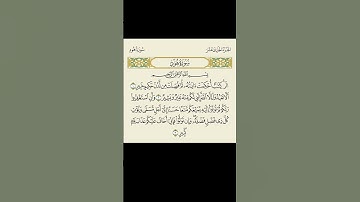 الجزء الحادي عشر
سورة هود
سُورَةُ هُودٍ
بِسْمِ اللَّهِ الرَّحْمَٰنِ الرَّحِيمِ
الر كِتَابٌ أُحْكِمَتْ آيَاتُهُ ثُمَّ فُصِّلَتْ مِن لَّدُنْ حَكِيمٍ خَبِيرٍ ١
أَلَّا تَعْبُدُوا إِلَّا اللَّهَ إِنَّنِي لَكُم مِّنْهُ نَذِيرٌ وَبَشِيرٌ ٢ وَأَنِ اسْتَغْفِرُوا
رَبَّكُمْ ثُمَّ تُوبُوا إِلَيْهِ يُمَتِّعْكُم مَّتَاعًا حَسَنًا إِلَىٰ أَجَلٍ مُّسَمًّى وَيُؤْتِ
كُلَّ ذِي فَضْلٍ فَضْلَهُ وَإِن تَوَلَّوْا فَإِنِّي أَخَافُ عَلَيْكُمْ عَذَابَ يَوْمٍ
كَبِيرٍ ٣